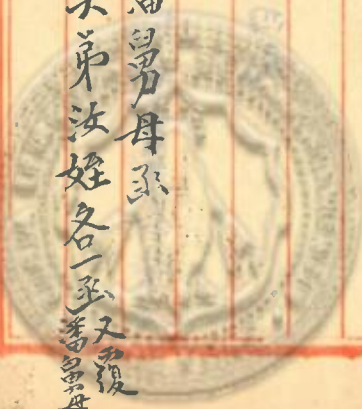 潘舅母函
弟汝姪各一函又覆
潘舅母